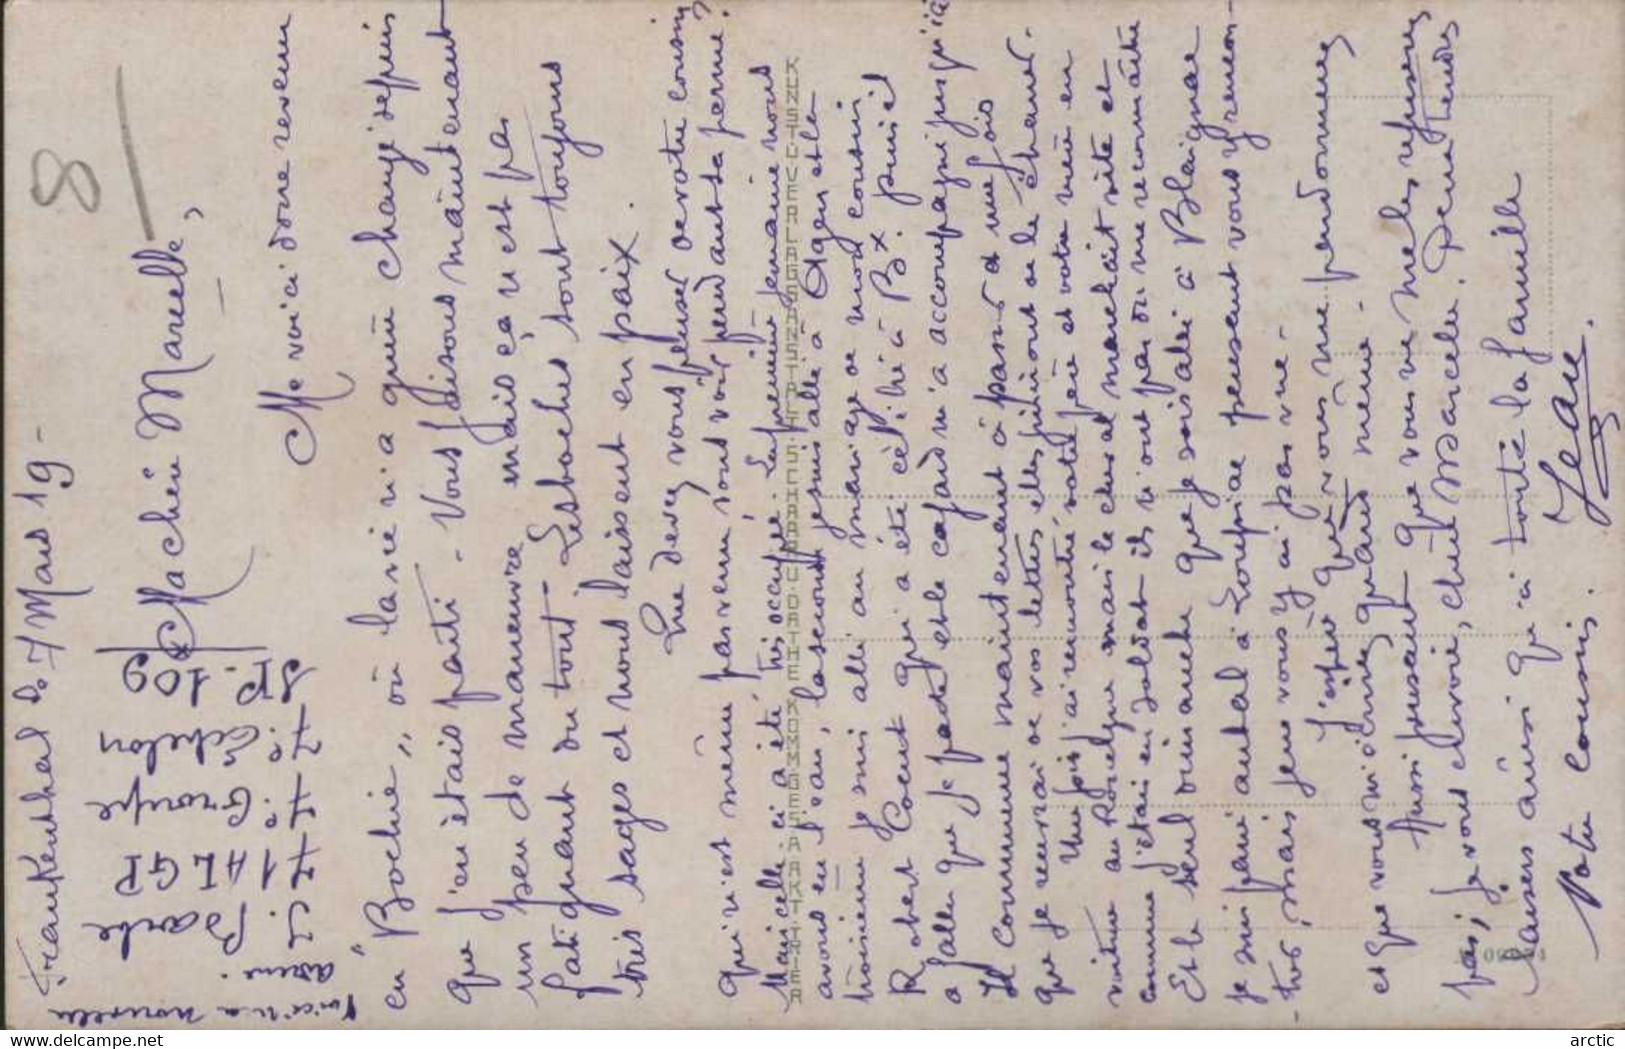 Frankenthal le 7 Mars 19-
8
Ma chère Marcelle,
Me voici donc revenu
en "Bochie", où la vie n'a guère changé depuis
que j'en étais parti - Nous faisons maintenant
un peu de manœuvre mais ça n'est pas
fatiguant du tout - Les boches sont toujours
très sages et nous laissent en paix.
Que devez vous penser de votre cousin
qui n'est même pas venu vous voir pendant sa perme?
Mais celle-ci a été très occupée. La première semaine nous
avons eu l'eau, la seconde je suis allé à Agen et la
troisième je suis allé au mariage de mon cousin
Robert Coeut qui a été célébré à Bx. puis il
a fallu que je parte et le cafard m'a accompagné jusqu'ici
Il commence maintenant à passer et une fois
que je recevrai de vos lettres elles finiront de le chasser.
Une fois j'ai rencontré votre père et votre mère en
voiture au Rouelgue mais le cheval marchait vite et
comme j'étais en soldat ils n'ont pas dû me reconnaître
Et le seul dimanche que je sois allé à Blaignac
je suis passé autant à Loupiac pensant vous y rencon-
trer, mais je ne vous y ai pas vue -
J'espère que vous me pardonnerez
et que vous m'écrirez quand même -
Aussi pensant que vous ne me les refuserez
pas, je vous envoie, chère Marcelle, deux tendres
baisers ainsi qu'à toute la famille
Votre cousin.
Jean
Voici ma nouvelle
adresse.
J. Barbe
71 ALGP
7e Groupe
7e Echelon
SP. 109
KUNST U. VERLAGSANSTALT SCHAAR U. DATHE KOMM.GES. A. AKT. TRIER
arctic